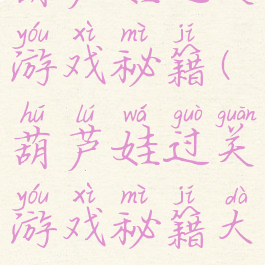 yóu xì mì jí
游戏秘籍(
hú lú wá guò guān
葫芦娃过关
yóu xì mì jí dà
游戏秘籍大